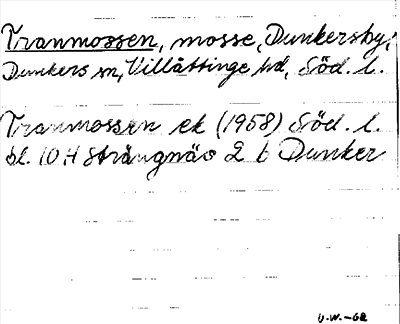 Tranmossen, mosse, Dunkersby,
Dunkers sn, Villåttinge hd, Söd. l.
Tranmossen ek (1958) Söd. l.
bl. 10 H Strängnäs 2 b Dunker
U.W.-62